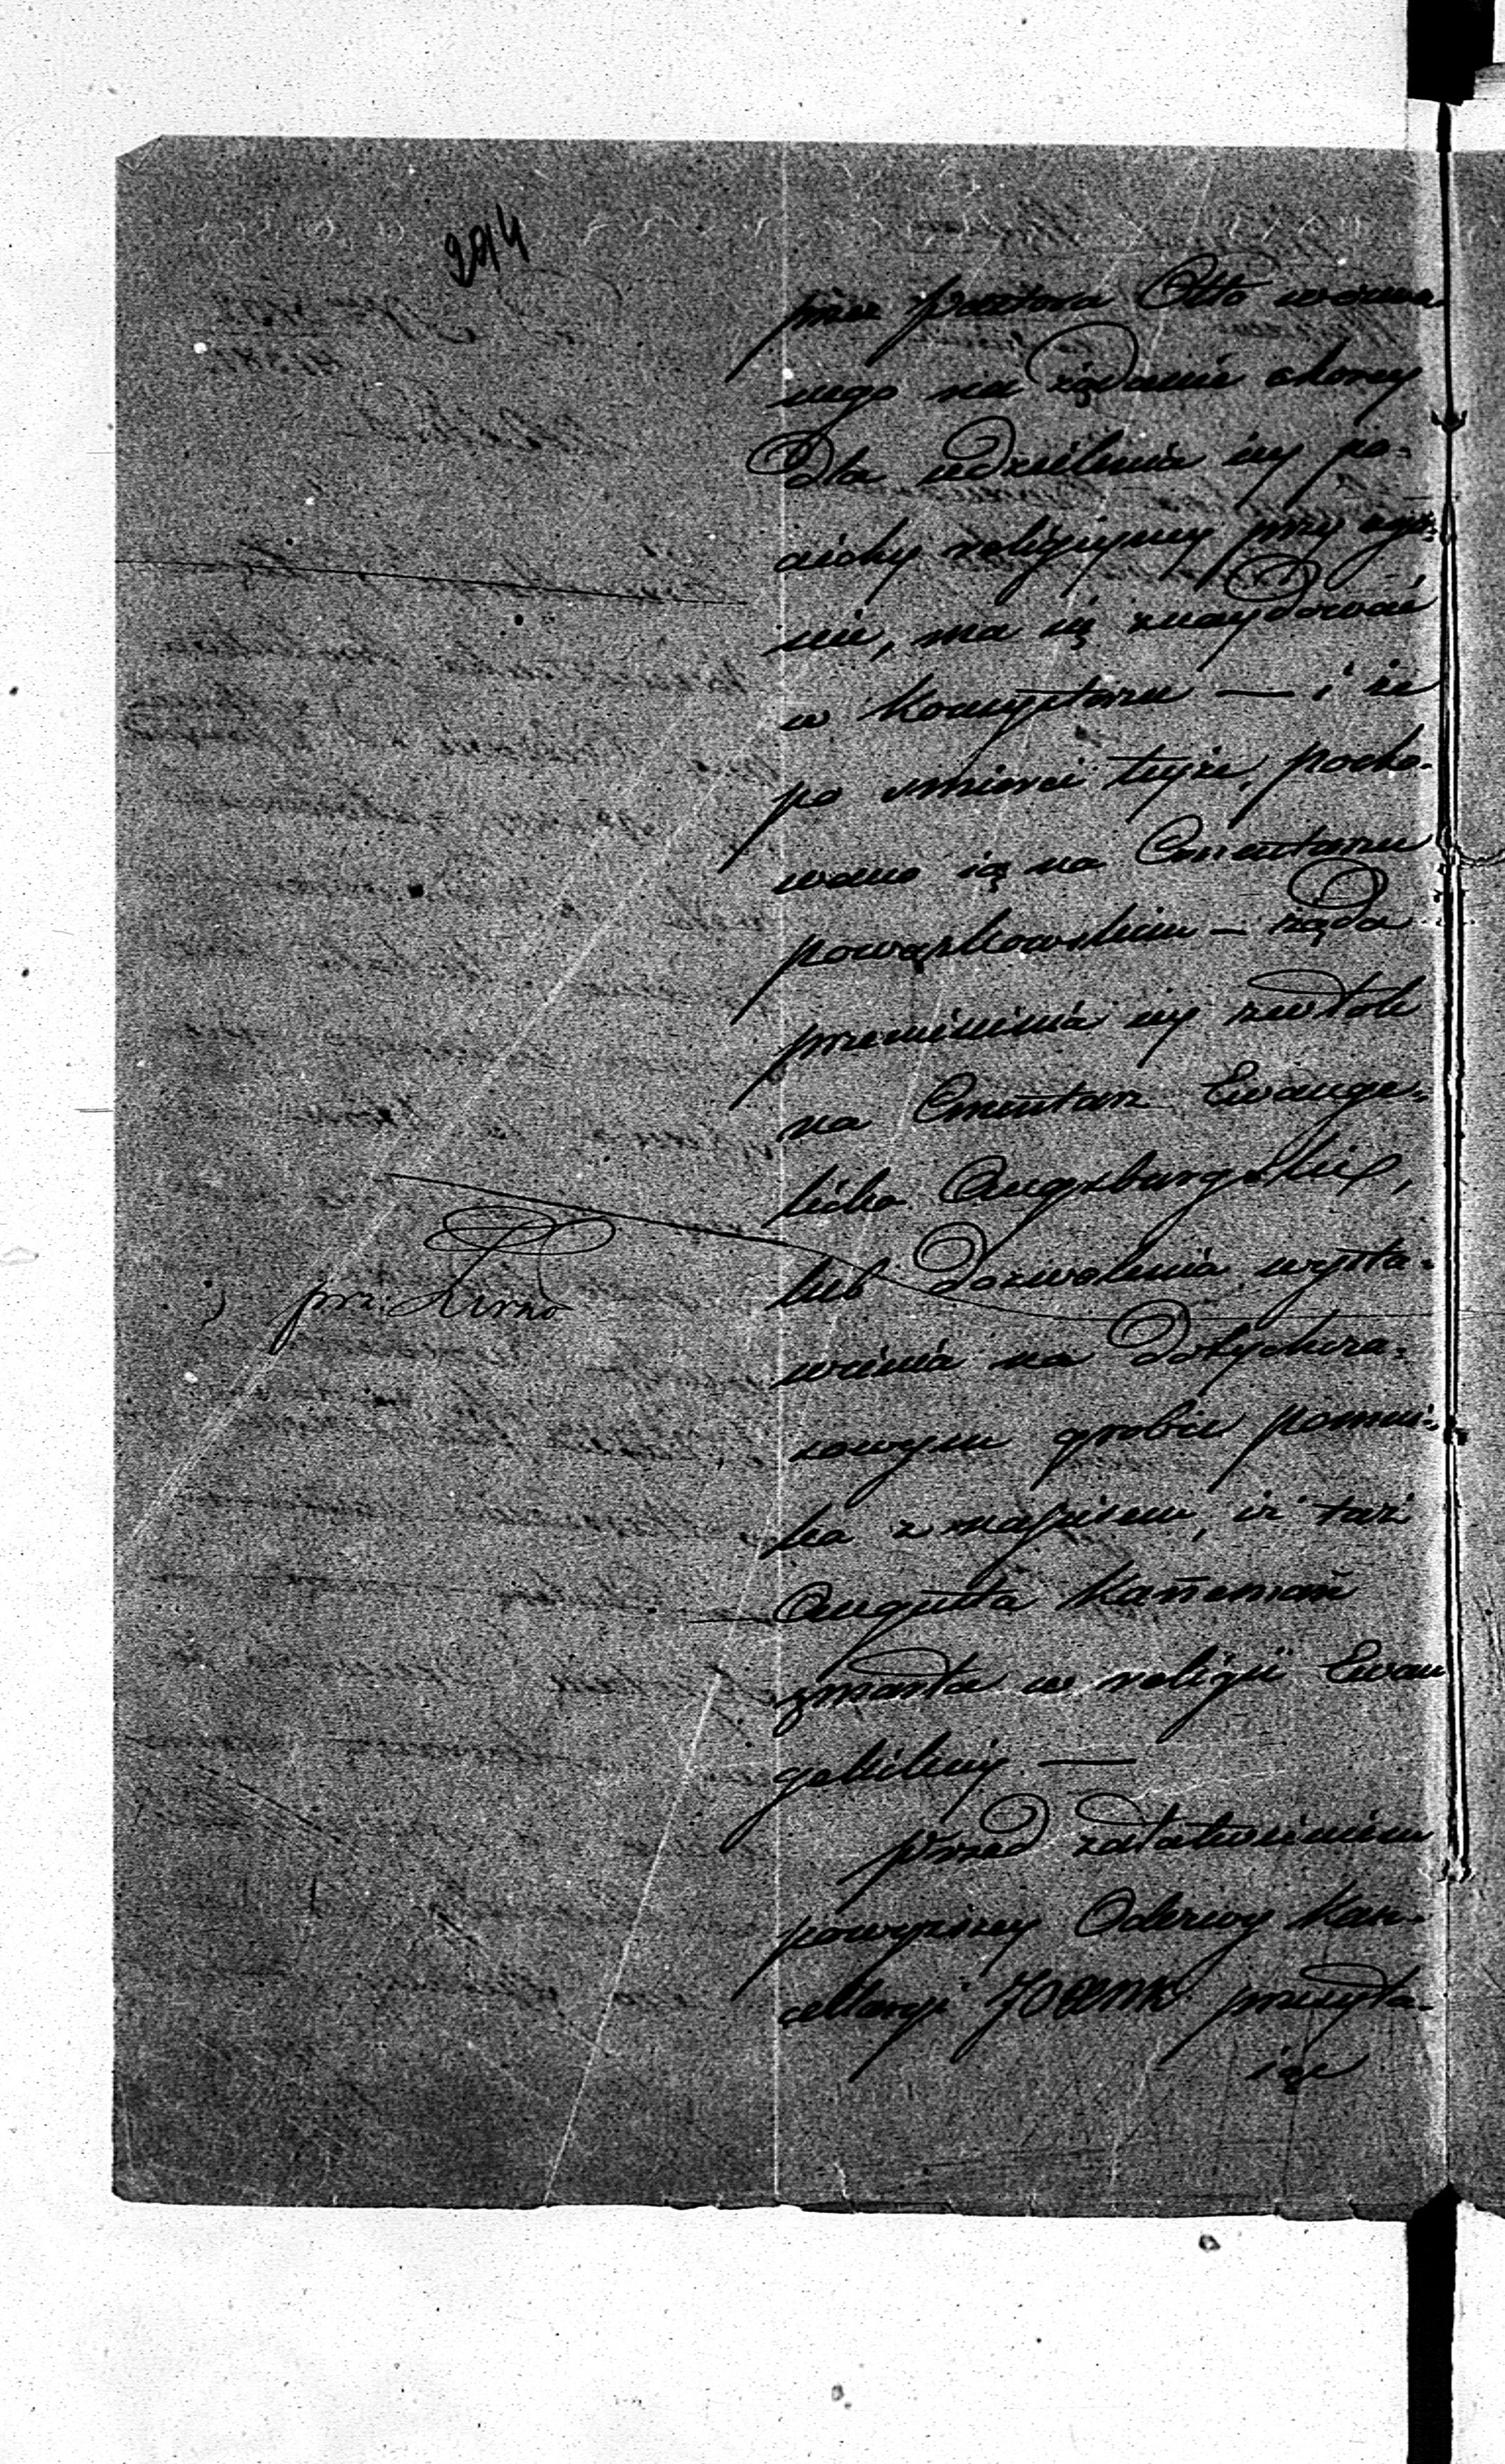 2014
przez pastora Otto wezwa
nego na żądanie chorey
dla udzielenia iey po-
ciechy religijney przy zgo-
nie, ma się znaydować
w Komyptarzu — i że
po śmierci teyże, pocho-
wano ią na Cmentarzu
powązkowskim — żąda
przeniesienia iey zwłok
na Cmentarz Ewange-
licko Augsburgskiej,
lub dozwolenia wysta-
wienia na dotychcza-
sowym grobie pomni-
ka z napisem, iż taż
Augusta Kan̄eman̄
zmarła w religii Ewan
gelickiej —
przed załatwieniem
powyższey Odezwy Kan-
cellaryi JO przesyła-
iąc
prz: